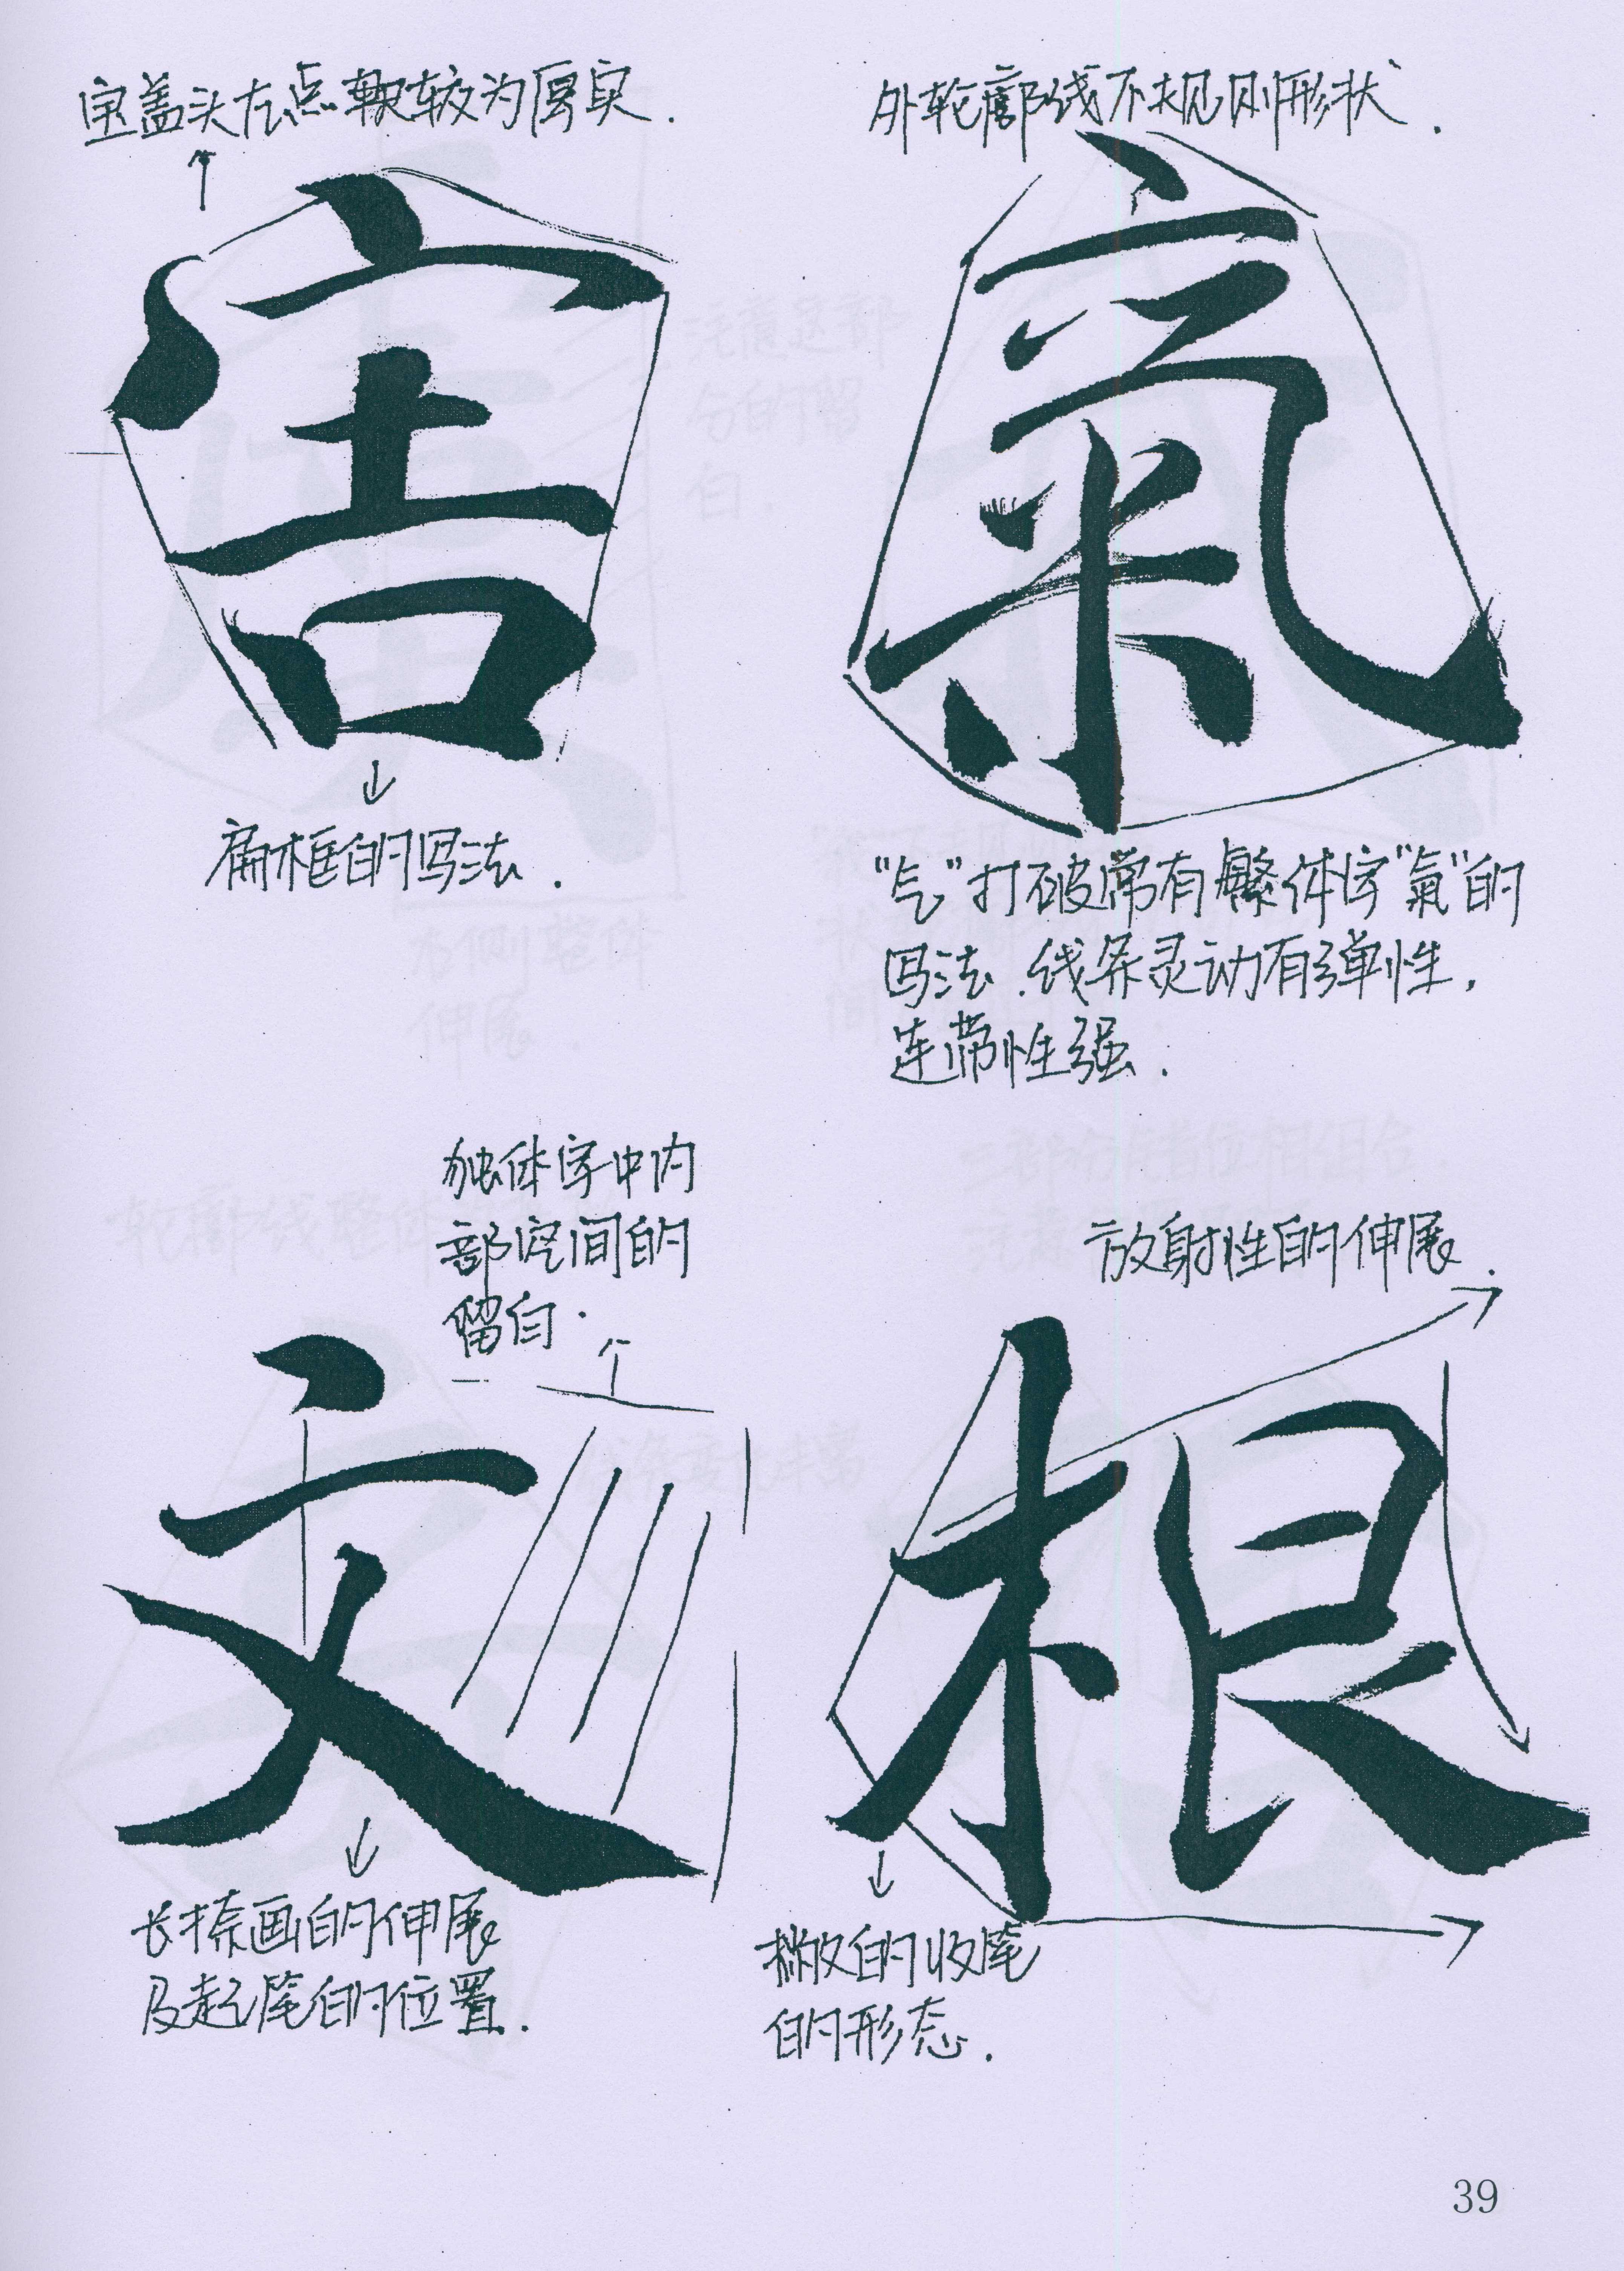 宝盖头左点 较为厚实.
害
扁框的写法.
外轮廓线不规则形状.
氣
"气"打破常有繁体字"氣"的
写法.线条灵动有弹性,
连带性强.
独体字中内
部空间的
留白.
文
长捺画的伸展
及起笔的位置.
放射性的伸展.
根
撇的收笔
的形态.
39